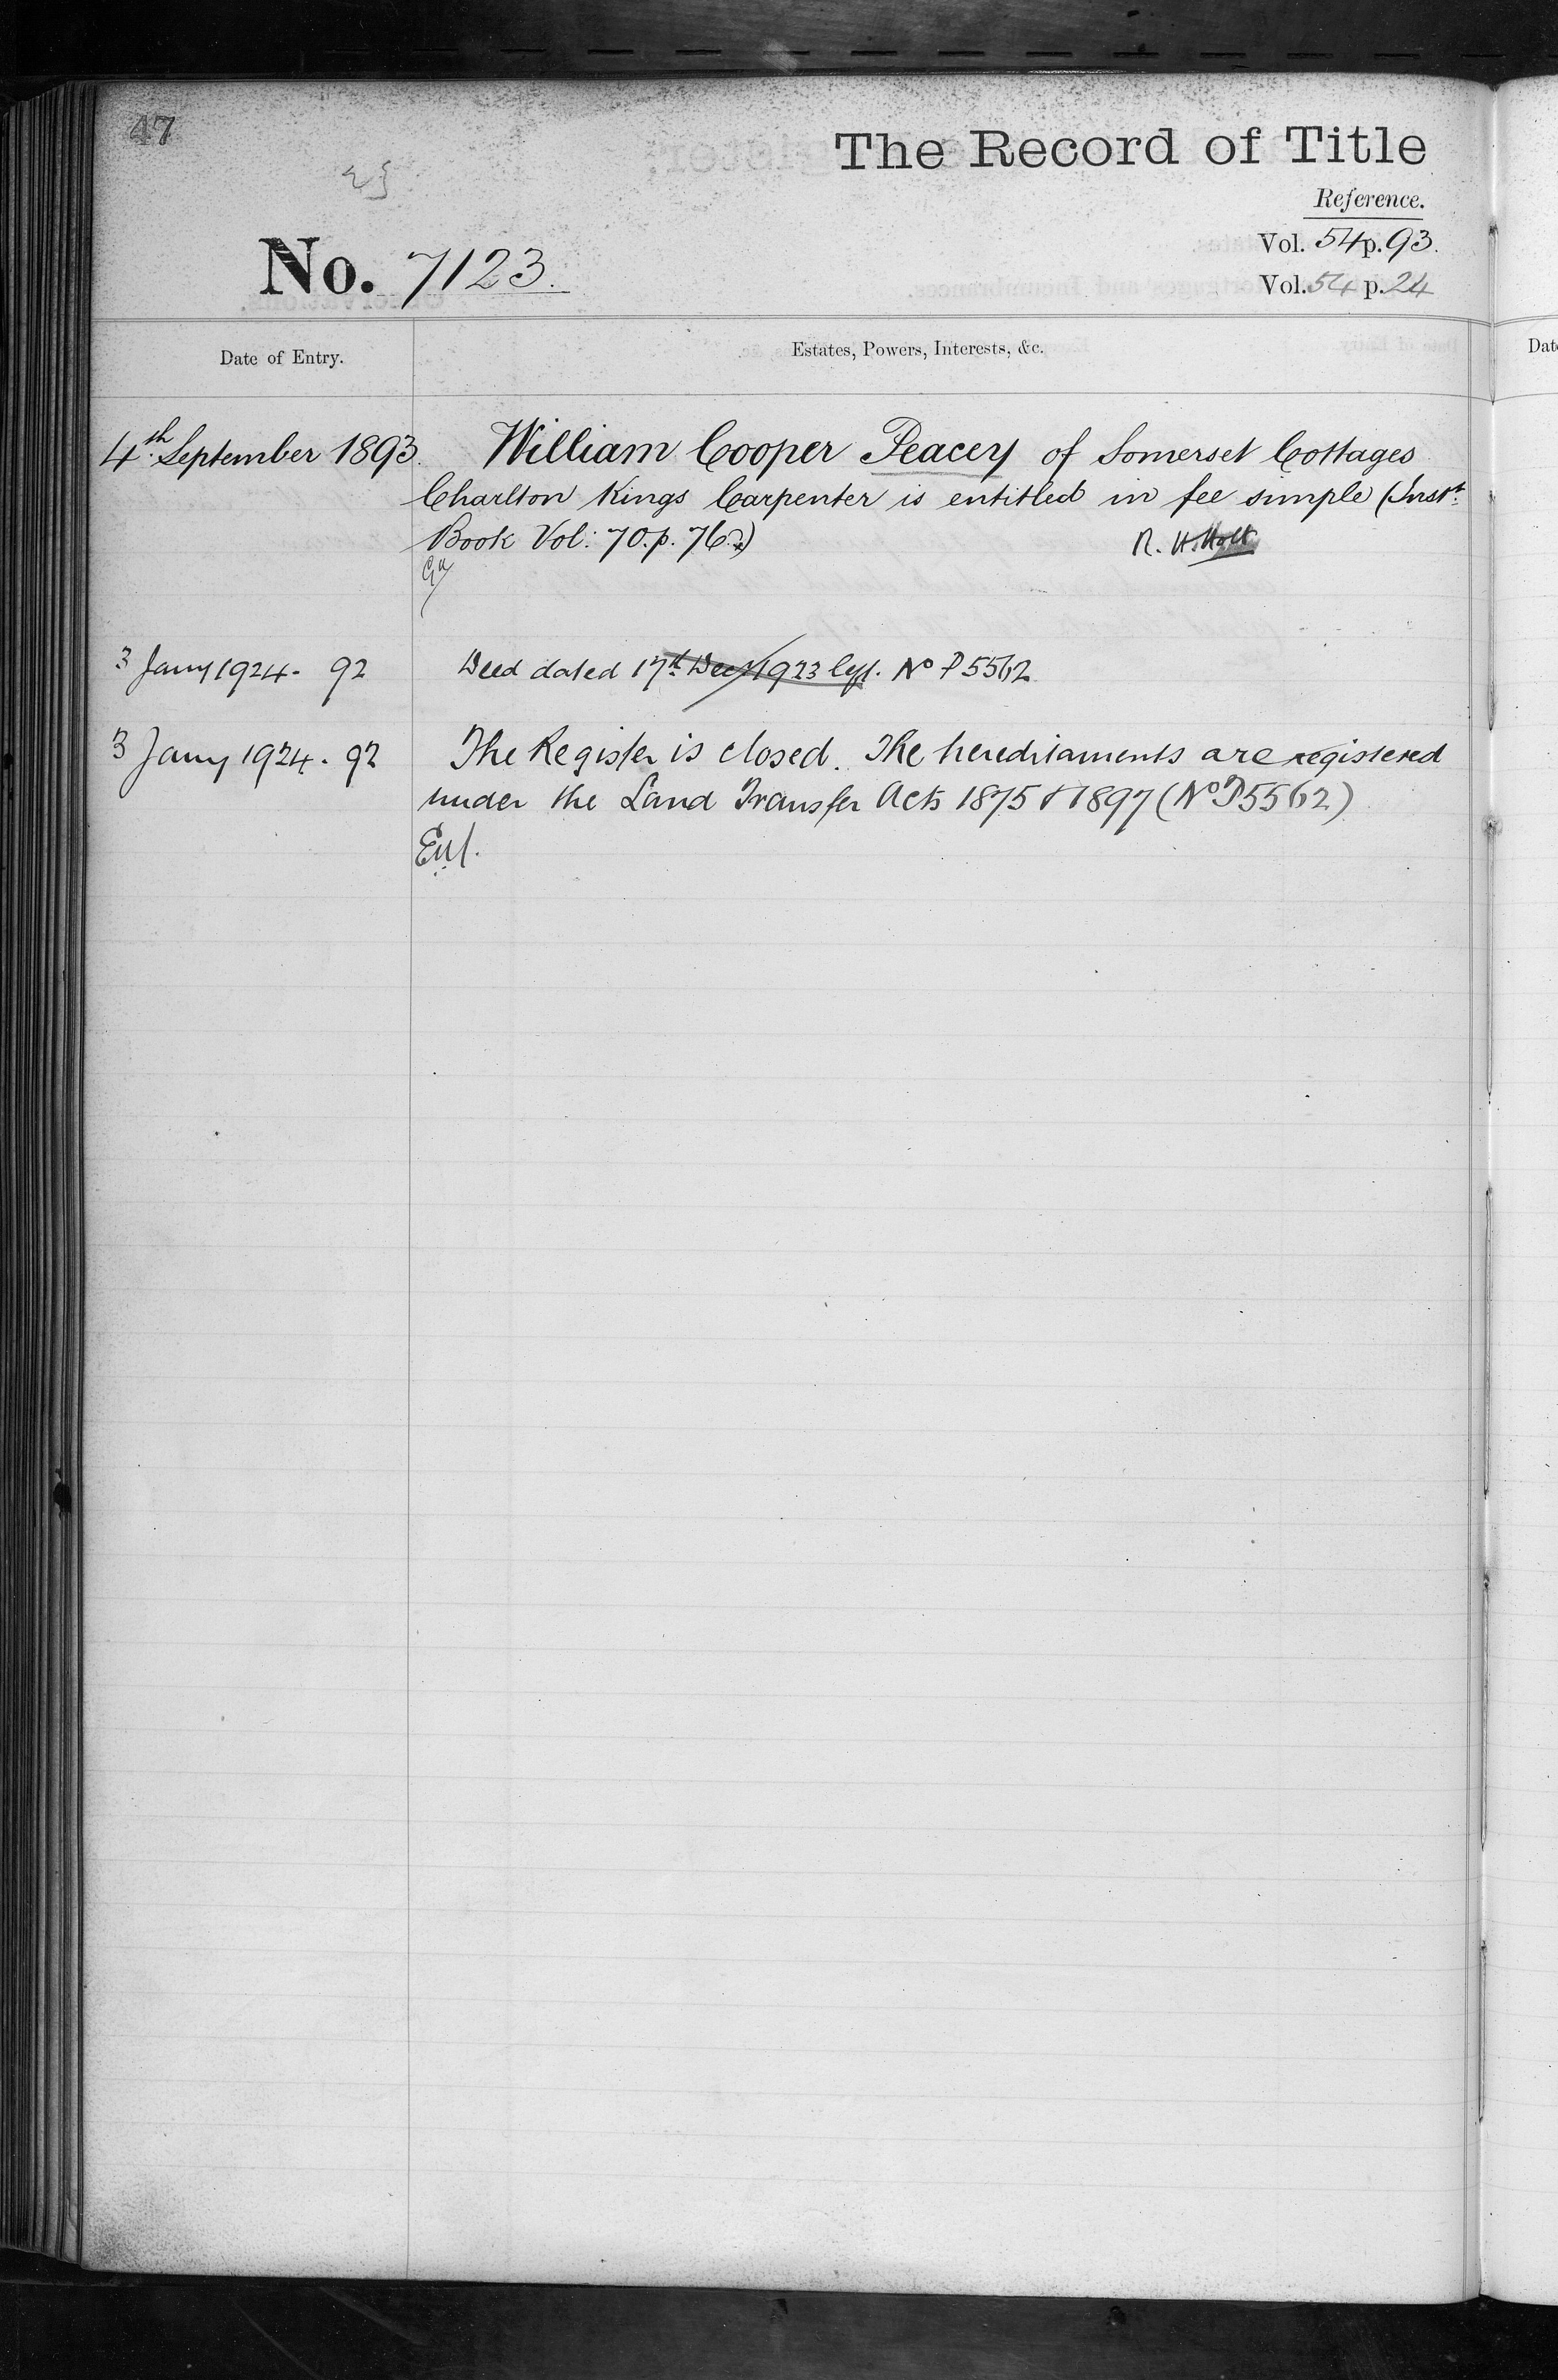 47
The Record of Title
Reference.
Vol. 54 p. 93.
No. 7123.
Vol. 54 p. 24
Date of Entry.
Estates, Powers, Interests, &c.
4th September 1893.
William Cooper Peacey of Somerset Cottages
Charlton Kings Carpenter is entitled in fee simple (Inst.
Book Vol: 70. p. 76.)
R. H. Holt
3 Jany 1924. 92
Deed dated 17th Decr 1923 No P5562
3 Jany 1924. 92
The Register is closed. The hereditaments are registered
under the Land Transfer Acts 1875 & 1897 (No P5562)